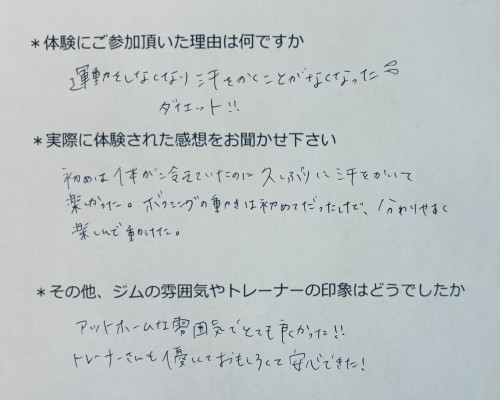 ＊体験にご参加頂いた理由は何ですか
運動をしなくなり汗をかくことがなくなった
ダイエット!!
＊実際に体験された感想をお聞かせ下さい
初めは体が冷えていたのに久しぶりに汗をかいて
楽しかった。ボクシングの動きは初めてだったけど、分かりやすく
楽しんで動けた。
＊その他、ジムの雰囲気やトレーナーの印象はどうでしたか
アットホームな雰囲気でとても良かった!!
トレーナーさんも優しくておもしろくて安心できた!